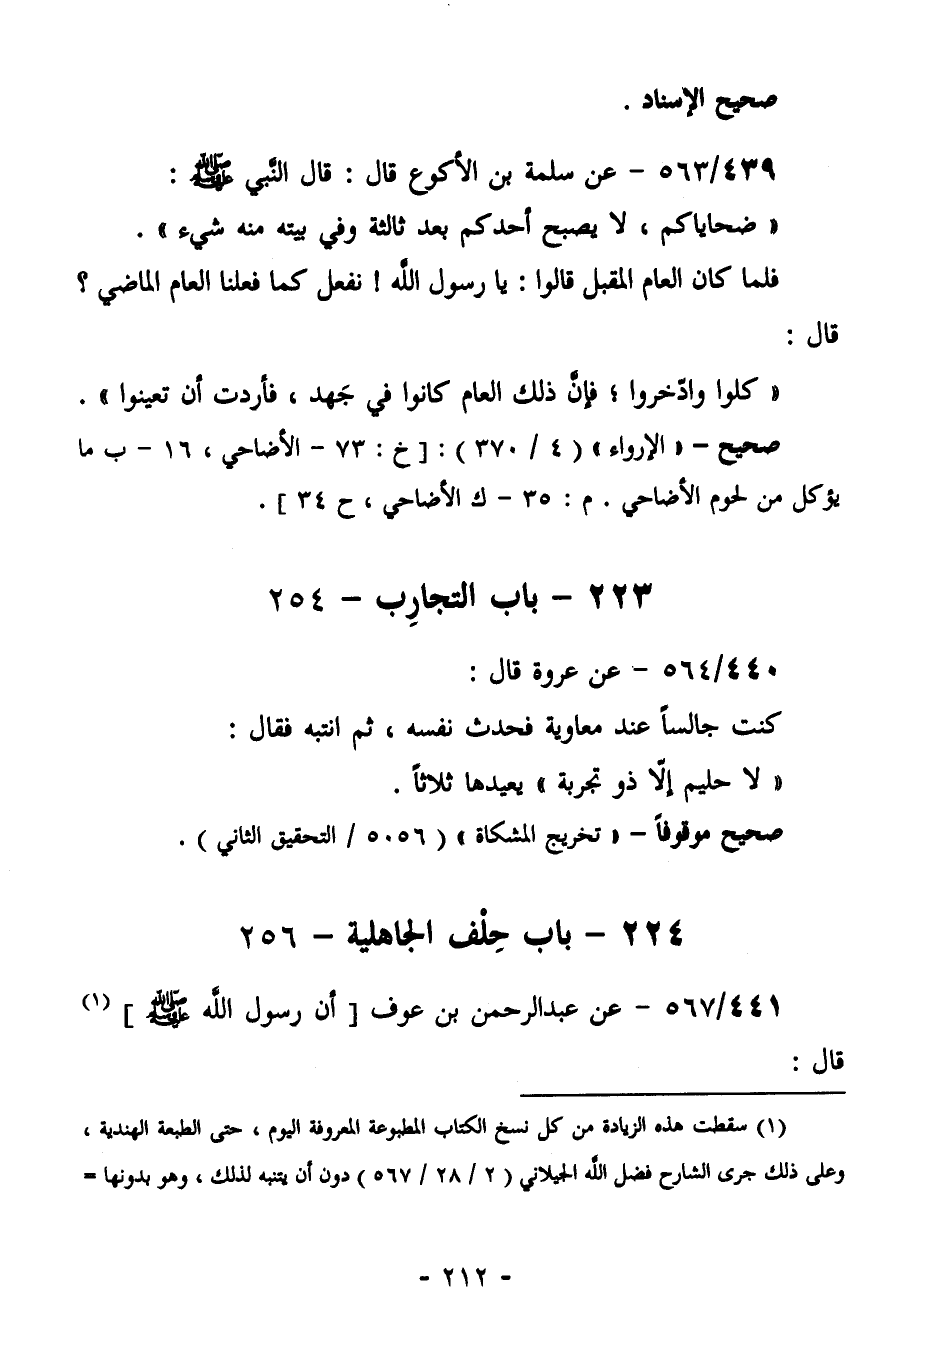 صحيح الإسناد .
٥٦٣/٤٣٩ – عن سلمة بن الأكوع قال : قال النَّبي ﷺ :
« ضحاياكم ، لا يصبح أحدكم بعد ثالثة وفي بيته منه شيء » .
فلما كان العام المقبل قالوا : يا رسول اللَّه ! نفعل كما فعلنا العام الماضي ؟
قال :
« كلوا وادّخروا ؛ فإنَّ ذلك العام كانوا في جَهد ، فأردت أن تعينوا » .
صحيح – « الإرواء » ( ٤ / ٣٧٠ ) : [ خ : ٧٣ – الأضاحي ، ١٦ – ب ما
يؤكل من لحوم الأضاحي . م : ٣٥ – ك الأضاحي ، ح ٣٤ ] .
٢٢٣ – باب التجارِب – ٢٥٤
٥٦٤/٤٤٠ – عن عروة قال :
كنت جالساً عند معاوية فحدث نفسه ، ثم انتبه فقال :
« لا حليم إلّا ذو تجربة » يعيدها ثلاثاً .
صحيح موقوفاً – « تخريج المشكاة » ( ٥٠٥٦ / التحقيق الثاني ) .
٢٢٤ – باب حِلْف الجاهلية – ٢٥٦
٥٦٧/٤٤١ – عن عبدالرحمن بن عوف [ أن رسول اللَّه ﷺ ] (١)
قال :
(١) سقطت هذه الزيادة من كل نسخ الكتاب المطبوعة المعروفة اليوم ، حتى الطبعة الهندية ،
وعلى ذلك جرى الشارح فضل اللَّه الجيلاني ( ٢ / ٢٨ / ٥٦٧ ) دون أن يتنبه لذلك ، وهو بدونها =
- ٢١٢ -